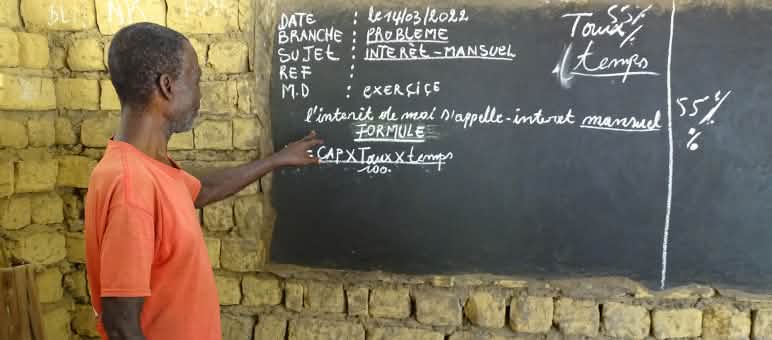 DATE : le 14/03/2022
BRANCHE : PROBLEME
SUJET : INTERÈT-MANSUEL
REF :
M.D : exerçiçe
l'interit de moi s'appelle-interet mansuel
FORMULE
= CAP X Taux x temps
100.
Taux 55%
temps
55%
%